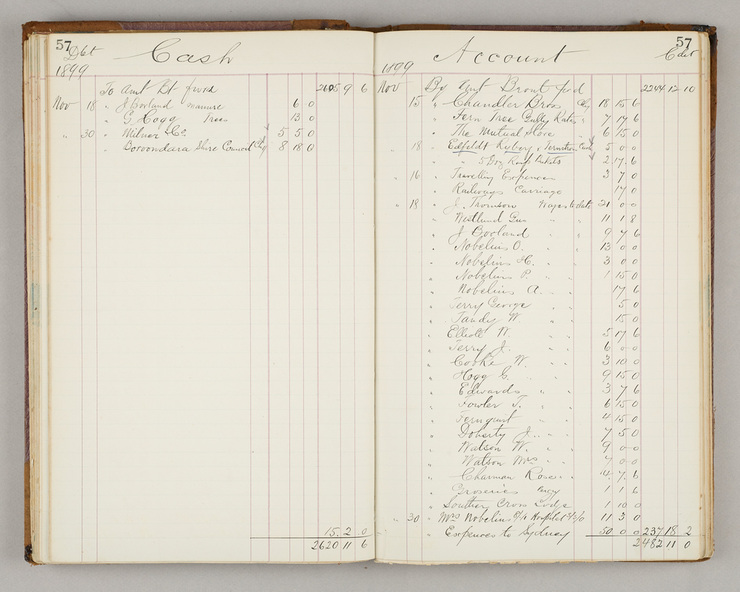 57
Dbt Cash
1899
To Amt Bt forwd 2605 9 6
Nov 18 " J. Borland manure 6 0
" G Hogg Trees 13 0
" 30 " Wilner & Co. 5 5 0
" Boroondara Shire Council Chq 8 18 0
15 2 0
2620 11 6
57
Account Cdit
1899
Nov By Amt Brout fwd 2244 12 10
15 " Chandler Bros Chq 18 15 6
" Fern Tree Gully Rates " 7 17 6
" The Mutual Store " 6 15 0
" 18 " Edfeldt Ryberg Cash 5 0 0
" " 5 Doz Knap Baskets 2 17 6
" 16 " Travelling Expences 3 7 0
" Railways Carriage 17 0
" 18 " J. Thomson Wages to date 21 0 0
" Westlund Gus " " 11 1 8
" J. Borland " " 9 7 6
" Nobelius O. " " 13 0 0
" Nobelius H. " " 3 0 0
" Nobelius P. " " 1 15 0
" Nobelius A. " " 17 6
" Terry George " " 5 0
" Tandy W " " 15 0
" Elliott W. " " 5 17 6
" Terry J. " " 6 0 0
" Cooke W. " " 3 10 0
" Hogg G. " " 9 15 0
" Edwards " " 3 7 6
" Fowler T. " " 6 15 0
" Fernquist " " 4 15 0
" Doherty J. " " 7 5 0
" Watson W. " " 9 0 0
" Watson Mrs " " 0 0
" Charman Rose " " 7 6
" Groceries 1 1 6
" Southern Cross Lodge 1 10 0
" 30 " Mrs Nobelius 11 3 0
" Expences to Sydney 50 0 0 237 18 2
2482 11 0